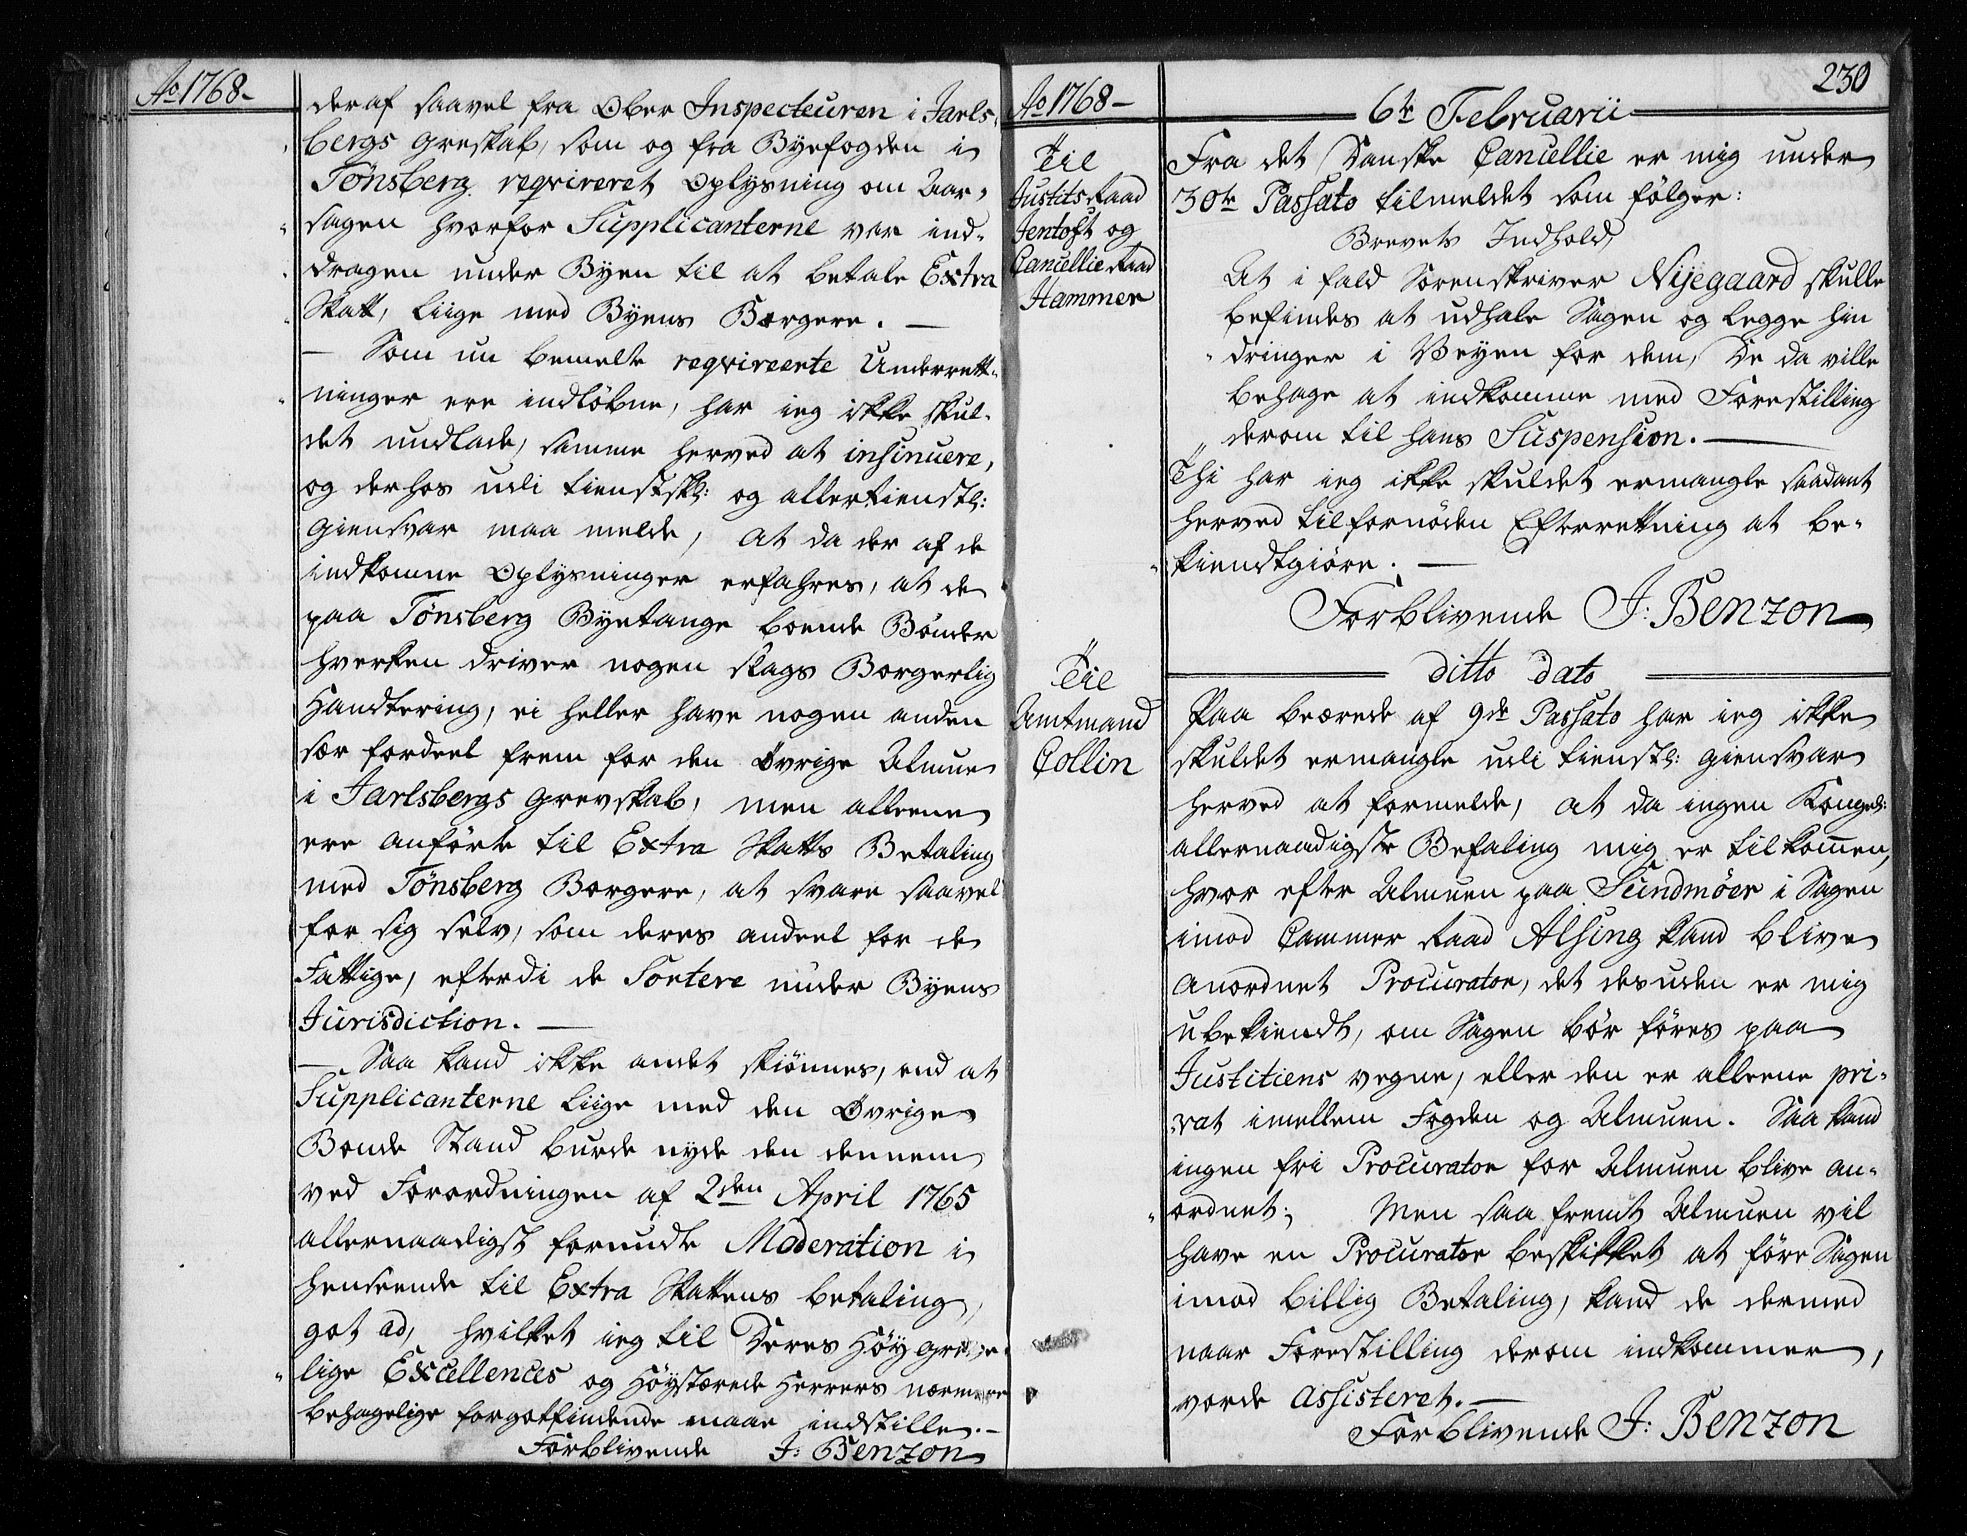 Ao 1768-
deraf saavel fra Ober Inspecteuren i Jarls-
bergs Greskab, som og fra Byefogden i
Tønsberg reqvireret Oplysning om Aar-
sagen hvorfor Supplicanterne var ind-
dragen under Byen til at betale Extra
Skatt, liige med Byens Borgere. —
— Som nu bemelte reqvireerte Underrett-
ninger ere indløbne, har ieg ikke skul-
det undlade, samme herved at insinuere,
og derhos udi tienstskl: og allertienstl:
Giensvar maa melde, at da der af de
indkomne Oplysninger erfahres, at de
paa Tønsberg Byetange boende Bønder
hverken driver nogen slags Borgerlig
Handtering, ei heller have nogen anden
sær fordeel frem for den Øvrige Almue
i Jarlsbergs Grevskab, men alleene
ere anførte til Extra Skatts Betaling
med Tønsberg Borgere, at svare saavel
for sig selv, som deres andeel for de
Fattige, efterdi de Sortere under Byens
Jurisdiction. —
— Saa kand ikke andet skiønnes, end at
Supplicanterne liige med den Øvrige
Bonde Stand burde nyde den dennem
ved Forordningen af 2den April 1765
allernaadigst forundte Moderation i
henseende til Extra Skattens betaling,
got ad, hvilket ieg til Deres Høy Greve-
lige Excellences og Høystærede Herrers nærmere
behagelige forgotfindende maae indstille. -
Forblivende J: Benzon
Ao 1768 -
230
6te Februarii
Til
Justits Raad
Jentoft og
Cancellie Raad
Hammer
Fra det Danske Cancellie er mig under
30te Passato tilmeldet som følger:
Brevets Indhold,
At i fald Sorenskriver Nijegaard skulle
befindes at udhale Sagen og legge hin
dringer i Veyen for dem, De da ville
behage at indkomme med Forestilling
derom til hans Suspension. —
Thi har ieg ikke skuldet ermangle saadant
herved til fornøden Efterretning at be-
kiendtgiøre. —
Forblivende J: Benzon
ditto dato
Til
Amtmand
Collin
Paa beærede af 9de Passato har ieg ikke
skuldet ermangle udi tienstl: giensvar
herved at formelde, at da ingen Kongel:
allernaadigste Befaling mig er tilkom̄en,
hvor efter Almuen paa Sundmøer i Sagen
imod Cammer Raad Alsing kand blive
anordnet Procurator, det desuden er mig
ubekiendt, om Sagen bør føres paa
Justitiens vegne, eller den er alleene pri-
vat imellem Fogden og Almuen. Saa kand
ingen fri Procurator for Almuen blive an-
ordnet; Men saa fremt Almuen vil
have en Procurator beskikket at føre Sagen
imod billig Betaling, kand de dermed
naar Forestilling derom indkommer,
vorde assisteret. —
Forblivende J: Benzon